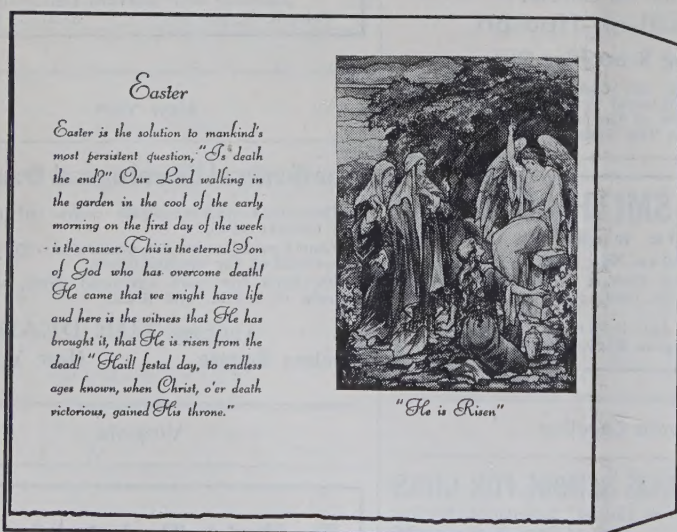 Easter
Easter is the solution to mankind's
most persistent question, "Is death
the end?" Our Lord walking in
the garden in the cool of the early
morning on the first day of the week
is the answer. This is the eternal Son
of God who has overcome death!
He came that we might have life
and here is the witness that He has
brought it, that He is risen from the
dead! "Hail! festal day, to endless
ages known, when Christ, o'er death
victorious, gained His throne."
"He is Risen"